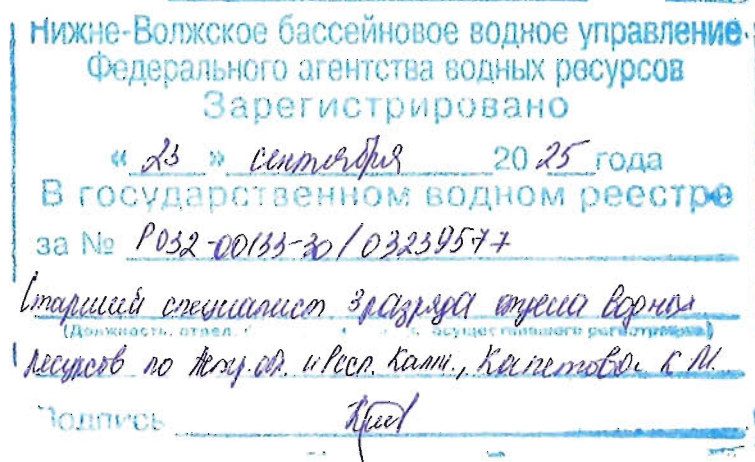 Нижне-Волжское бассейновое водное управление
Федерального агентства водных ресурсов
Зарегистрировано
« 23 » сентября 2025 года
В государственном водном реестре
за № Р032-00133-30/03239577
Старший специалист 3 разряда отдела водных
(Должность, отдел, осуществившего регистрацию)
ресурсов по Астр. обл. и Респ. Калм., К. М.
Подпись